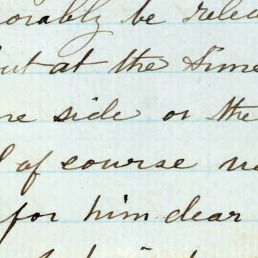 orably be relea
but at the time
ne side or the
d of course no
for him dear